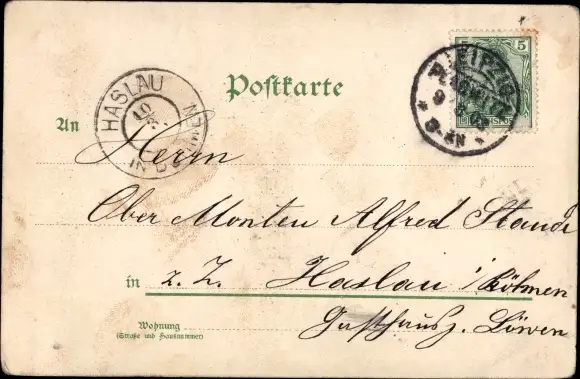 Postkarte
HASLAU
10
IN BÖHMEN
5
LEIPZIG
PLAGWITZ
9
3-4N
An
Herrn
Ober Monteu Alfred
in z. Z. Haslau i/Böhmen
Gasthaus z. Löwen
Wohnung
(Straße und Hausnummer)